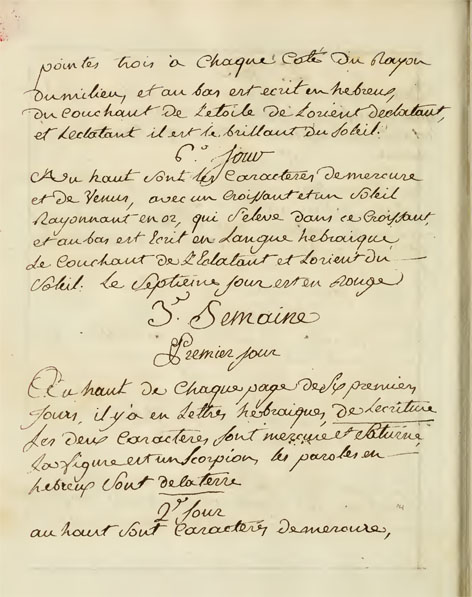 pointes trois a Chaque Coté Du Rayon
Du milieu, et au bas est ecrit en hebreux,
du Couchant de L'etoile de Lorient declatant,
et Leclatant il est le brillant du Soleil.
6.e Jour
Au haut Sont les Caracteres de mercure
et de Venus, avec un Croissant et un Soleil
Rayonnant en or, qui S'eleve dans ce Croissant,
et au bas est Ecrit en Langue hebraique
Le Couchant de L'Eclatant et Lorient du
Soleil. Le Septieme Jour est en Rouge
3.e Semaine
Premier Jour
Au haut de Chaque page des Six premiers
Jours, il y'a en Lettres hebraiques, de Lecriture
Les deux Caracteres Sont mercure et Saturne,
La figure est un Scorpion, les paroles en
hebreux Sont de la terre
2.e Jour
au haut Sont Caracteres de mercure,